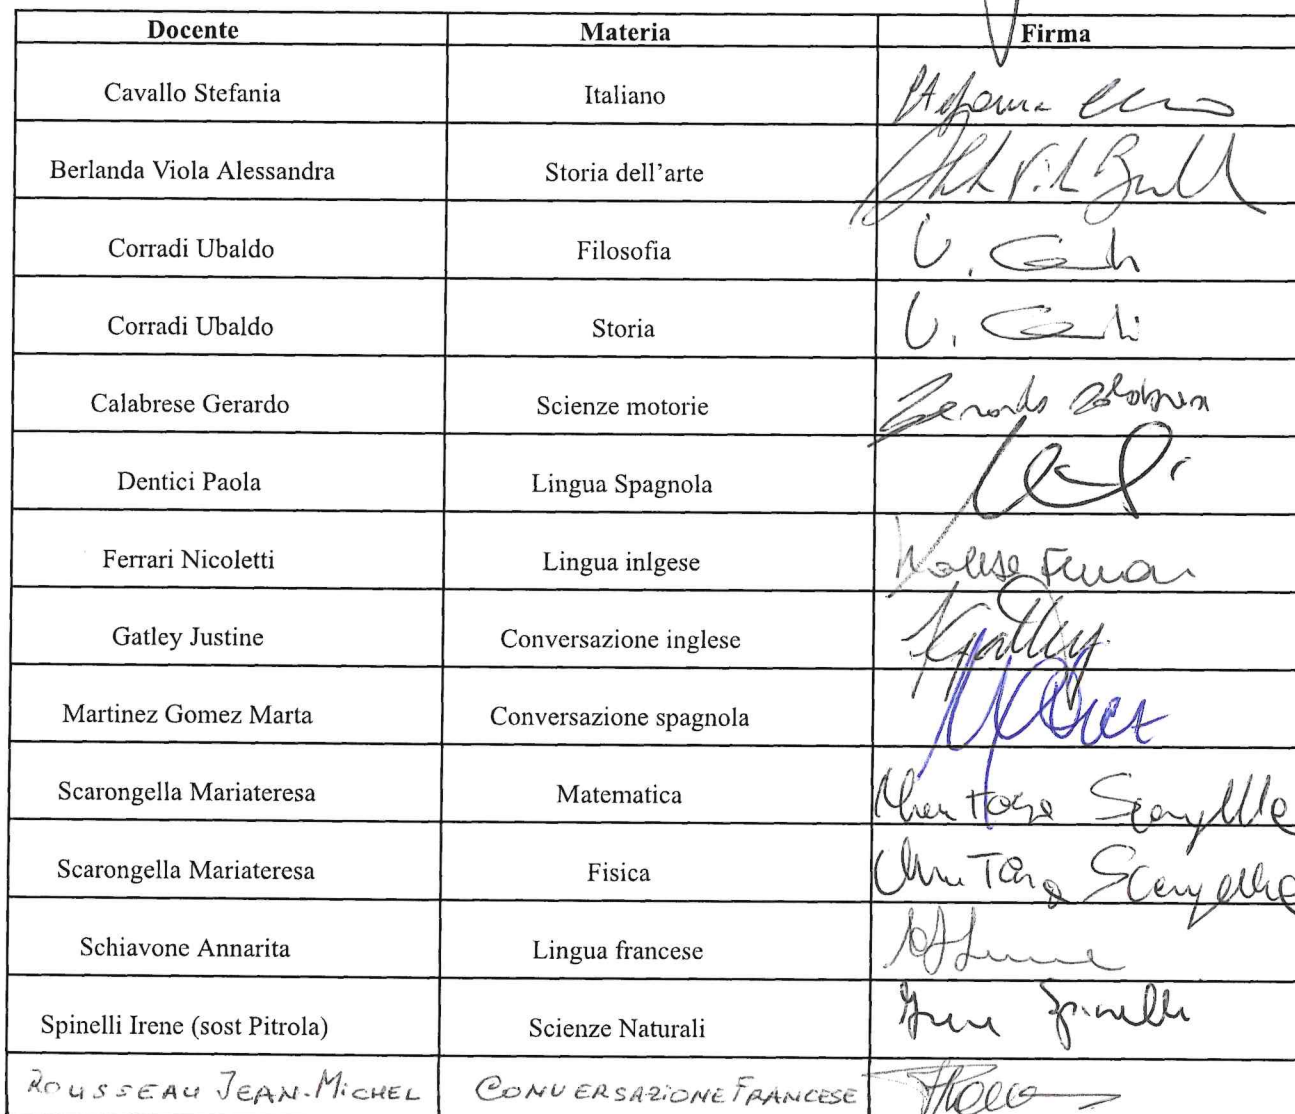 Docente Materia Firma
Cavallo Stefania Italiano
Berlanda Viola Alessandra Storia dell'arte
Corradi Ubaldo Filosofia U.
Corradi Ubaldo Storia U.
Calabrese Gerardo Scienze motorie Gerardo Calabrese
Dentici Paola Lingua Spagnola
Ferrari Nicoletti Lingua inlgese Ferrari
Gatley Justine Conversazione inglese JGatley
Martinez Gomez Marta Conversazione spagnola
Scarongella Mariateresa Matematica Scarongella
Scarongella Mariateresa Fisica Scarongella
Schiavone Annarita Lingua francese
Spinelli Irene (sost Pitrola) Scienze Naturali Irene Spinelli
ROUSSEAU JEAN-MICHEL CONVERSAZIONE FRANCESE